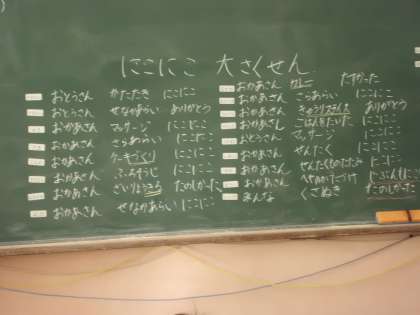 にこにこ 大さくせん
おとうさん かたたたき にこにこ
おとうさん せなかあらい ありがとう
おかあさん マッサージ にこにこ
おかあさん さらあらい にこにこ
おかあさん ケーキづくり にこにこ
おかあさん ふろそうじ にこにこ
おかあさん さいりょうさん たのしかった
おかあさん せなかあらい にこにこ
おかあさん たすかった
おかあさん さらあらい にこにこ
おかあさん ありがとう
おかあさん ごはんをたいた にこにこ
おとうさん マッサージ にこにこ
おかあさん せんたく にこにこ
おかあさん せんたくものたたみ にこにこ
おかあさん へやかたづけ じぶんにこにこ
みんな くさぬき たのしかった